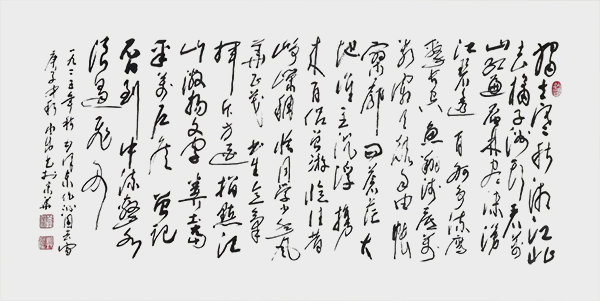 独立寒秋湘江北
去橘子洲头看万
山红遍层林尽染漫
江碧透百舸争流鹰
击长空鱼翔浅底万
类霜天竞自由怅
寥廓问苍茫大
地谁主沉浮携
来百侣曾游忆往昔
峥嵘稠恰同学少年风
华正茂书生意气
挥斥方遒指点江
山激扬文字粪土当
年万户侯曾记
否到中流击水
浪遏飞舟
一九二五年秋毛泽东作沁园春
庚子中秋